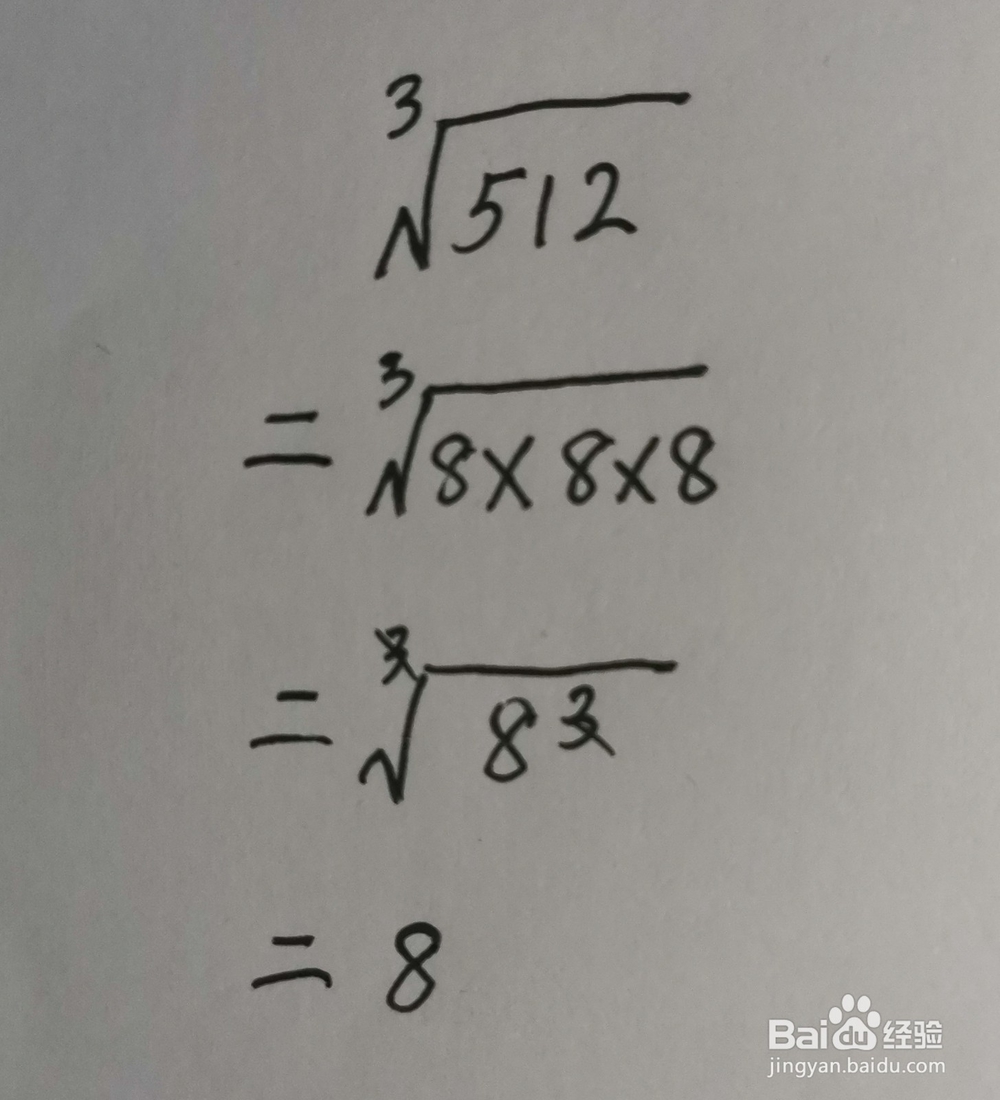 ∛512
= ∛8×8×8
= ∛8³
= 8
Bai du 经验
jingyan.baidu.com